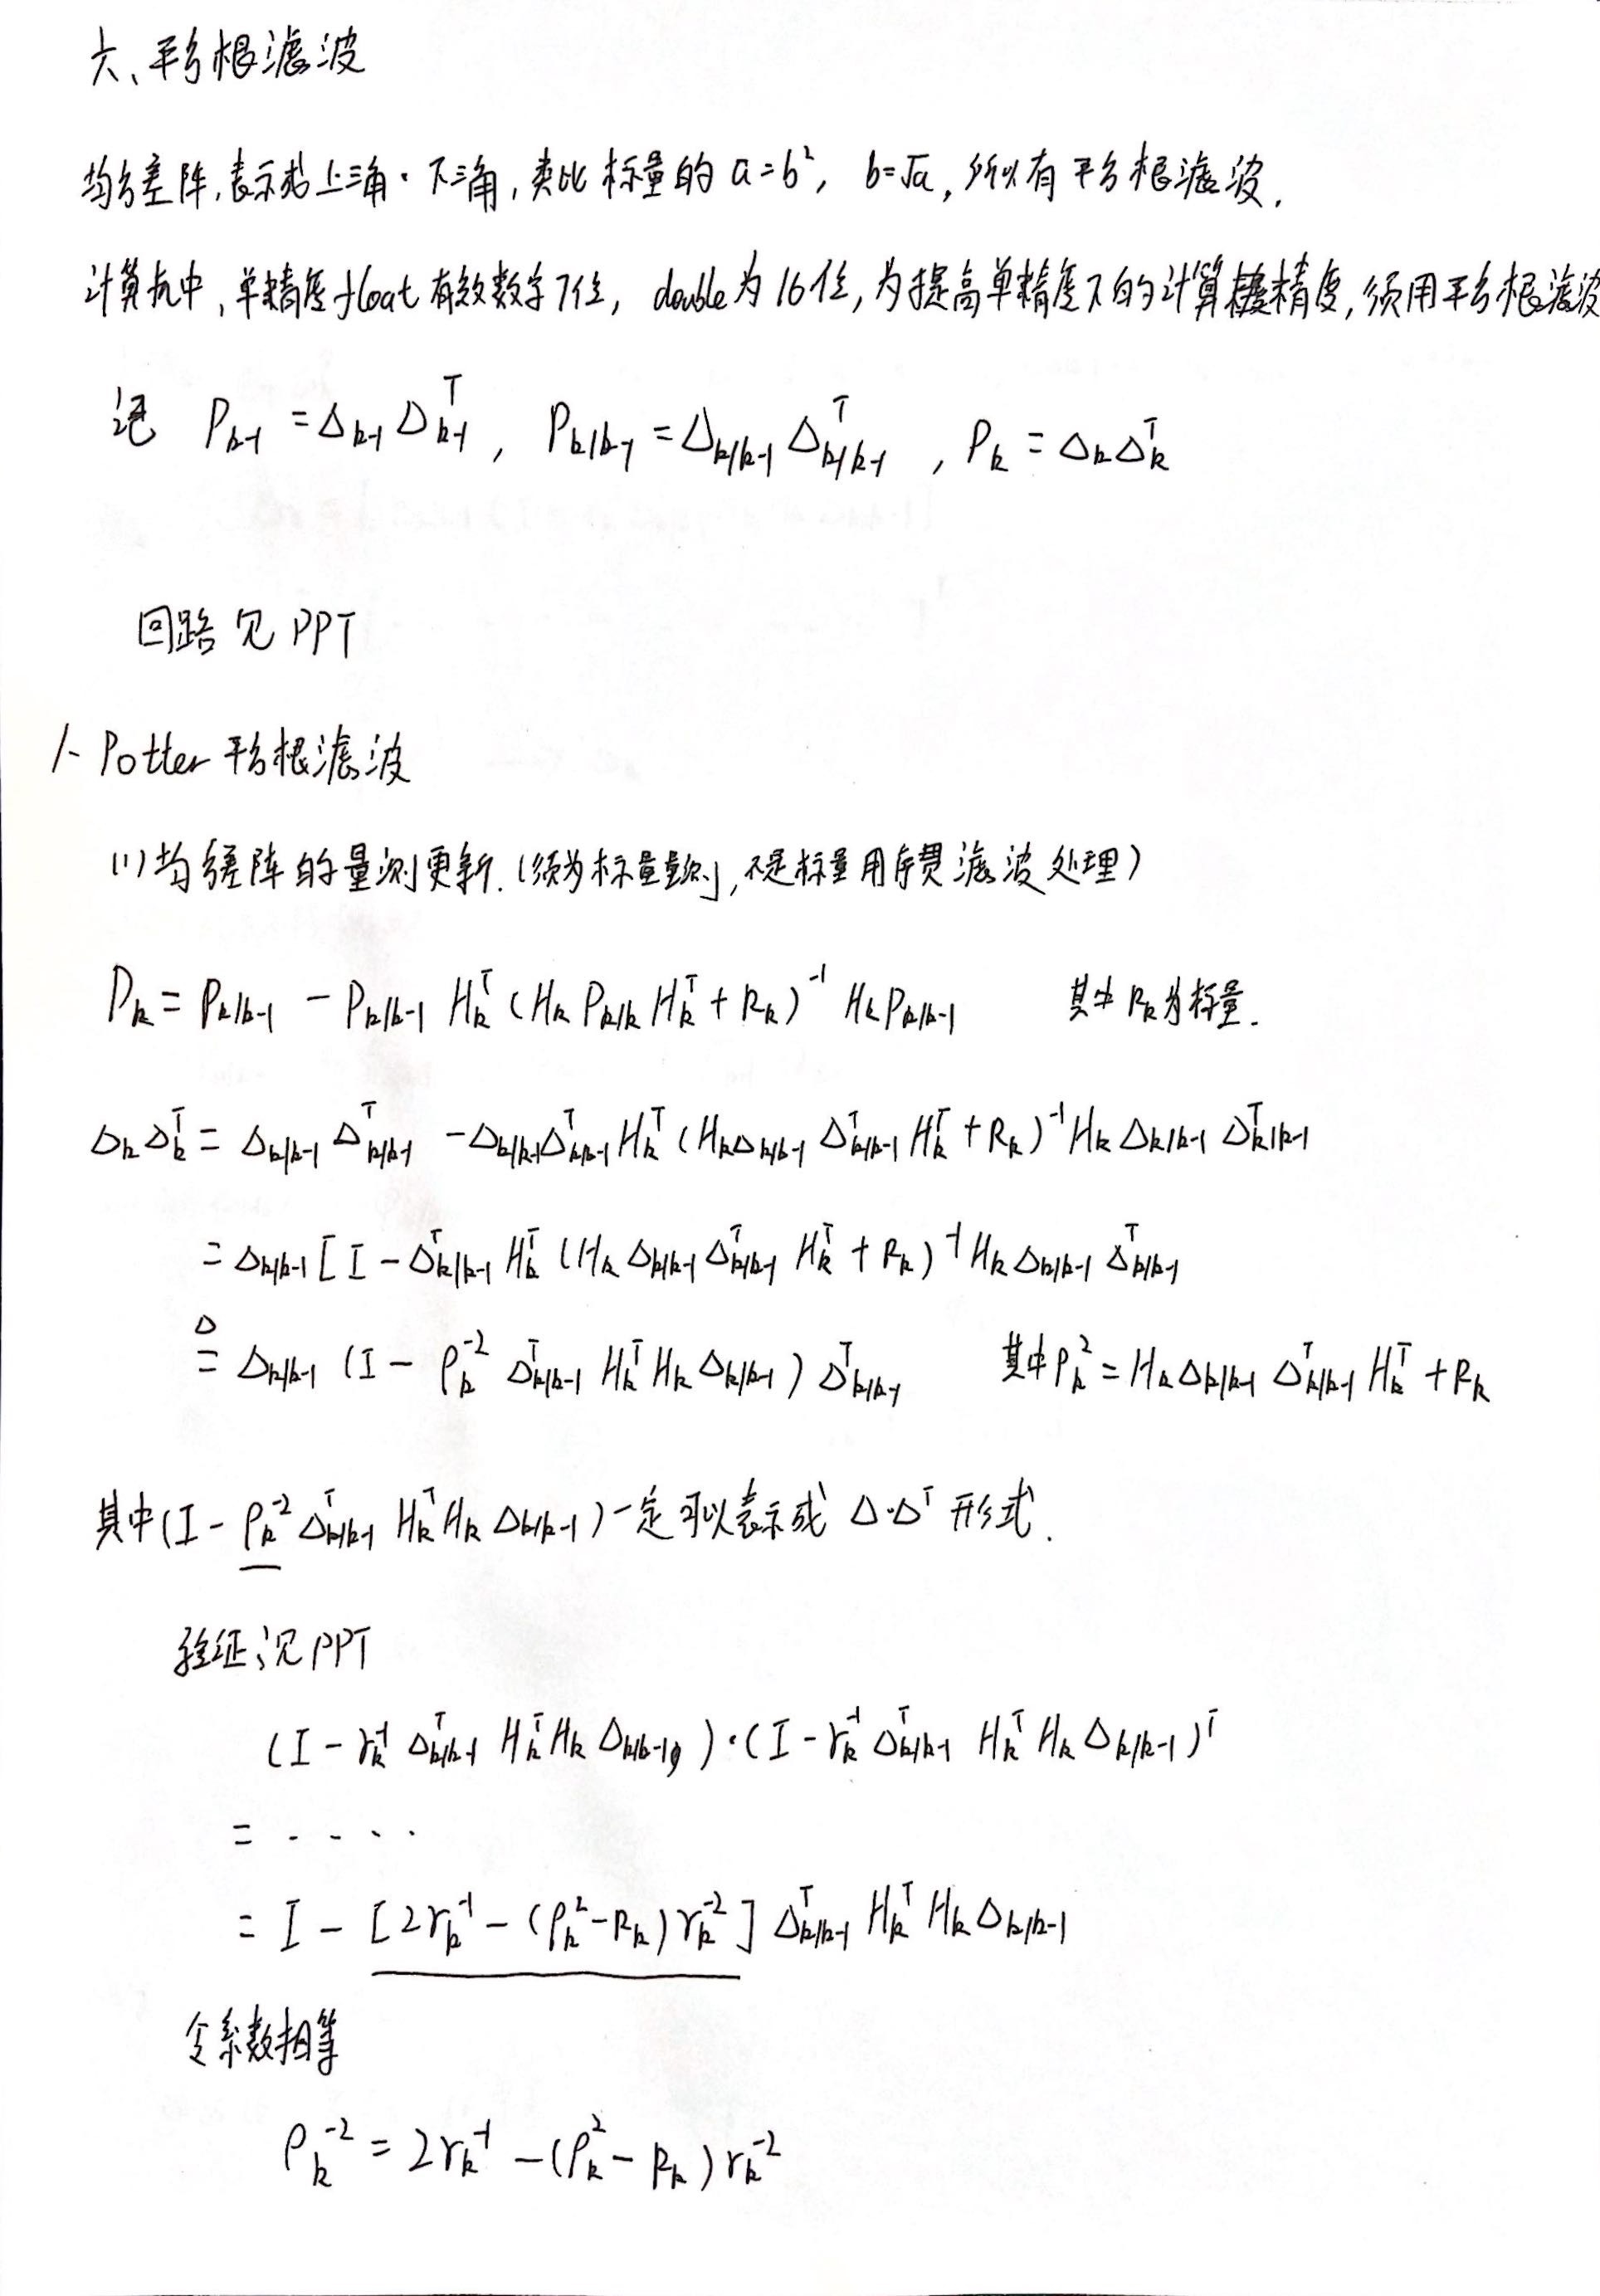 六、平方根滤波
均方差阵,表示成上三角·下三角,类比标量的 a=b², b=√a,所以有平方根滤波.
计算机中,单精度float有效数字7位, double为16位,为提高单精度下的计算精度,须用平方根滤波
记 P_{k-1} = Δ_{k-1} Δ_{k-1}^T , P_{k/k-1} = Δ_{k/k-1} Δ_{k/k-1}^T , P_k = Δ_k Δ_k^T
回路见PPT
1. Potter 平方根滤波
(1) 均方差阵的量测更新. (须为标量量测,不是标量用序贯滤波处理)
P_k = P_{k/k-1} - P_{k/k-1} H_k^T (H_k P_{k/k} H_k^T + R_k)^{-1} H_k P_{k/k-1} 其中 R_k 为标量.
Δ_k Δ_k^T = Δ_{k/k-1} Δ_{k/k-1}^T - Δ_{k/k-1} Δ_{k/k-1}^T H_k^T (H_k Δ_{k/k-1} Δ_{k/k-1}^T H_k^T + R_k)^{-1} H_k Δ_{k/k-1} Δ_{k/k-1}^T
= Δ_{k/k-1} [ I - Δ_{k/k-1}^T H_k^T (H_k Δ_{k/k-1} Δ_{k/k-1}^T H_k^T + R_k)^{-1} H_k Δ_{k/k-1} Δ_{k/k-1}^T
≜ Δ_{k/k-1} (I - ρ_k^{-2} Δ_{k/k-1}^T H_k^T H_k Δ_{k/k-1}) Δ_{k/k-1}^T 其中 ρ_k^2 = H_k Δ_{k/k-1} Δ_{k/k-1}^T H_k^T + R_k
其中 (I - ρ_k^{-2} Δ_{k/k-1}^T H_k^T H_k Δ_{k/k-1}) 一定可以表示成 Δ·Δ^T 形式.
验证见PPT
(I - γ_k^{-1} Δ_{k/k-1}^T H_k^T H_k Δ_{k/k-1})·(I - γ_k^{-1} Δ_{k/k-1}^T H_k^T H_k Δ_{k/k-1})^T
= ····
= I - [2γ_k^{-1} - (ρ_k^2 - R_k) γ_k^{-2}] Δ_{k/k-1}^T H_k^T H_k Δ_{k/k-1}
令系数相等
ρ_k^{-2} = 2γ_k^{-1} - (ρ_k^2 - R_k) γ_k^{-2}